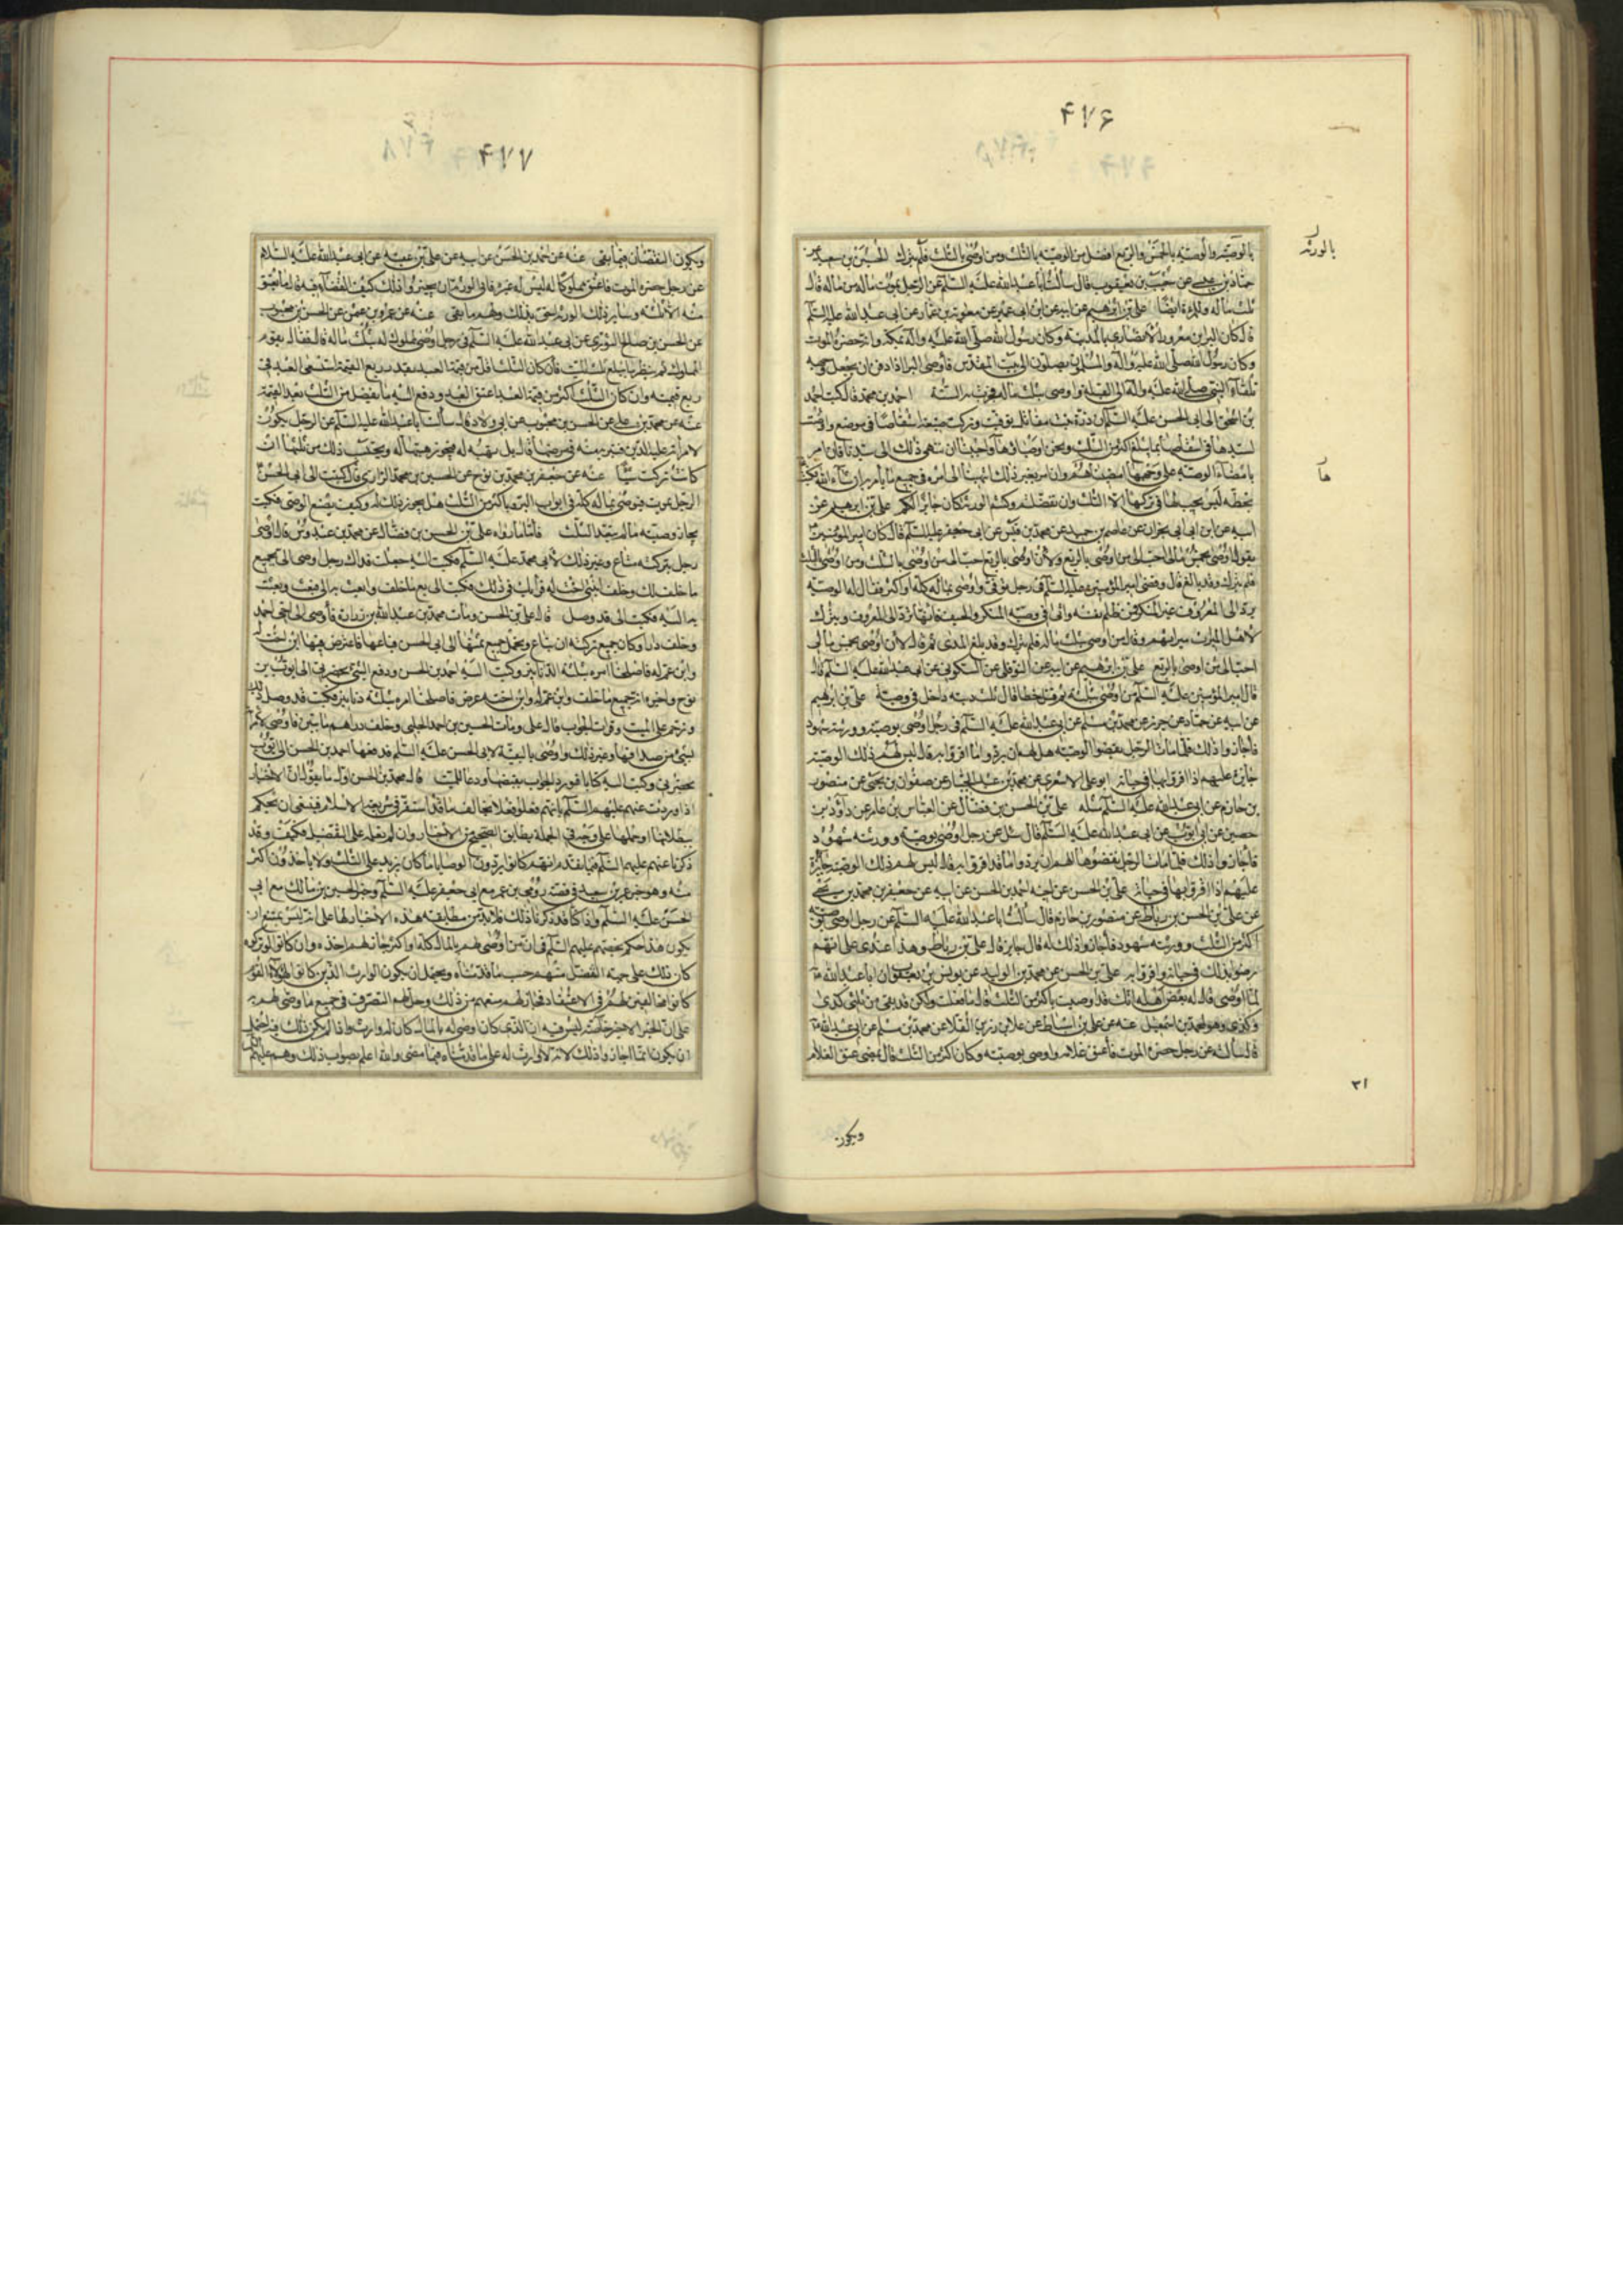 ۴۷۶
بالورثه
بالوصية والوصية بالخمس والربع افضل من الوصية بالثلث ومن اوصى بالثلث فلم يترك الحسين بن سعيد عن
حماد بن عيسى عن شعيب بن يعقوب قال سألت ابا عبد الله عليه السلم عن الرجل يموت ماله من ماله قال
ثلث ماله وللمرءة ايضا على بن ابرهيم عن ابيه عن ابن ابى عمير عن معوية بن عمار عن ابى عبد الله عليه السلم
قال كان البراء بن معرور الانصارى بالمدينة وكان رسول الله صلى الله عليه وآله بمكة وانه حضره الموت
وكان رسول الله صلى الله عليه وآله والمسلمون يصلون الى بيت المقدس فاوصى البراء اذا دفن ان يجعل وجهه
تلقاء النبى صلى الله عليه وآله الى القبلة واوصى بثلث ماله فجرت به السنة احمد بن محمد قال كتب احمد
بن اسحق الى ابى الحسن عليه السلم ان درة بنت مقاتل توفيت وتركت ضيعة اشقاصا فى موضع واوصت
لسيدها فى اشقاصها بما يبلغ اكثر من الثلث ونحن اوصياؤها واحببنا ان ننهى ذلك الى سيدنا فان امر
بامضاء الوصية على وجهها امضيناها وان امر بغير ذلك انتهينا الى امره فى جميع ما يأمر به ان شاء الله فكتب
بخطه ليس يجب لها فى تركتها الا الثلث وان تفضلتم وكنتم الورثة كان جايزا لكم على بن ابرهيم عن
ابيه عن ابن ابى نجران عن عاصم بن حميد عن محمد بن قيس عن ابى جعفر عليه السلم قال كان امير المؤمنين
يقول لان اوصى بخمس مالى احب الى من ان اوصى بالربع ولان اوصى بالربع احب الى من ان اوصى بالثلث ومن اوصى بالثلث
فلم يترك وقد بالغ قال وقضى امير المؤمنين عليه السلم فى رجل توفى واوصى بماله كله او اكثره فقال له الوصية
يرد الى المعروف غير المنكر فمن ظلم نفسه واتى فى وصيته المنكر والحيف فانها ترد الى المعروف ويترك
لاهل الميراث ميراثهم وقال من اوصى بثلث ماله فلم يترك وقد بلغ المدى ثم قال لان اوصى بخمس مالى
احب الى من ان اوصى بالربع على بن ابرهيم عن ابيه عن النوفلى عن السكونى عن ابى عبد الله عليه السلم قال
قال امير المؤمنين عليه السلم من اوصى بثلثه ثم قتل خطا قال ثلث ديته داخل فى وصيته على بن ابرهيم
عن ابيه عن حماد عن حريز عن محمد بن مسلم عن ابى عبد الله عليه السلم فى رجل اوصى بوصية وورثته شهود
فاجازوا ذلك فلما مات الرجل نقضوا الوصية هل لهم ان يردوا ما اقروا به قال ليس لهم ذلك الوصية
جايزة عليهم اذا اقروا بها فى حياته ابو على الاشعرى عن محمد بن عبد الجبار عن صفوان بن يحيى عن منصور
بن حازم عن ابى عبد الله عليه السلم مثله على بن الحسن بن فضال عن العباس بن عامر عن داود بن
حصين عن ابى ايوب عن ابى عبد الله عليه السلم قال سئل عن رجل اوصى بوصية وورثته شهود
فاجازوا ذلك فلما مات الرجل نقضوها الهم ان يردوا ما قد اقروا به قال ليس لهم ذلك الوصية جايزة
عليهم اذا اقروا بها فى حياته على بن الحسن عن اخيه احمد بن الحسن عن ابيه عن جعفر بن محمد بن يحيى
عن على بن الحسن بن رباط عن منصور بن حازم قال سألت ابا عبد الله عليه السلم عن رجل اوصى بوصية
اكثر من الثلث وورثته شهود فاجازوا ذلك له قال جايز قال على بن رباط وهذا عندى على انهم
رضوا بذلك فى حياته واقروا به على بن الحسن عن محمد بن الوليد عن يونس بن يعقوب ان ابا عبد الله
لما اوصى قال له بعض اهله انك قد اوصيت باكثر من الثلث قال ما فعلت ولكن قد بقى من ثلثى كذى
وكذى وهو لمحمد بن اسمعيل عنه عن على بن اسباط عن علا بن رزين القلا عن محمد بن مسلم عن ابى عبد الله
قال سألته عن رجل حضره الموت فاعتق غلامه واوصى بوصيته وكان اكثر من الثلث قال يمضى عتق الغلام
ها
۳۱
ويكون
۴۷۷
ويكون النقصان فيما بقى عنه عن احمد بن الحسن عن ابيه عن على بن عقبة عن ابى عبد الله عليه السلام
عن رجل حضره الموت فاعتق مملوكا له ليس له غيره فابى الورثة ان يجيزوا ذلك كيف القضاء فيه قال ما يعتق
منه الا ثلثه وساير ذلك الورثة احق بذلك ولهم ما بقى عنه عن عمرو بن عثمن عن الحسن بن محبوب
عن الحسن بن صالح الثورى عن ابى عبد الله عليه السلم فى رجل اوصى لمملوك له بثلث ماله قال فقال يقوم
المملوك ثم ينظر ما يبلغ ثلث الميت فان كان الثلث اقل من قيمة العبد بقدر ربع القيمة استسعى العبد فى
ربع قيمته وان كان الثلث اكثر من قيمة العبد اعتق العبد ودفع اليه ما يفضل من الثلث بعد القيمة
عنه عن محمد بن على عن الحسن بن محبوب عن ابى ولاد قال سألت ابا عبد الله عليه السلم عن الرجل يكون
لامرأته عليه الدين فتبرئه منه فى مرضها قال بل تهبه له فيجوز هبتها له ويحتسب ذلك من ثلثها ان
كانت تركت شيئا عنه عن جعفر بن محمد بن نوح عن الحسين بن محمد الرازى قال كتبت الى ابى الحسن
الرجل يموت فيوصى بماله كله فى ابواب البر وباكثر من الثلث هل يجوز ذلك له وكيف يصنع الوصى فكتب
يجاز وصيته ما لم يتعد الثلث فاما ما رواه على بن الحسن بن فضال عن محمد بن عبدوس قال اوصى
رجل بتركته متاع وغير ذلك لابى محمد عليه السلم فكتبت اليه جعلت فداك رجل اوصى الى بجميع
ما خلف لك وخلف ابنتى اخت له فرأيك فى ذلك فكتب الى بع ما خلف وابعث به الى فبعت وبعثت
به اليه فكتب الى قد وصل قال على بن الحسن ومات محمد بن عبد الله بن زرارة فاوصى الى اخى احمد
وخلف دارا وكان جميع تركته ان تباع ويحمل جميع ثمنها الى ابى الحسن فباعها فاعترض فيها ابن اخت له
وابن عم له فاصلحنا امره بثلثة الدنانير وكتب اليه احمد بن الحسن ودفع الشئ بحضرتى الى ايوب بن
نوح واخبره انه جميع ما خلف وابن عم له وابن اخته عرض فاصلحنا امره بثلثة دنانير فكتب قد وصل ذلك
وترحم على الميت وقرأت الجواب قال على ومات الحسين بن احمد الحلبى وخلف دراهم مائتين فاوصى لامرأته
بشئ من صداقها وغير ذلك واوصى بالبقية لابى الحسن عليه السلم فدفعها احمد بن الحسن الى ايوب
بحضرتى وكتب اليه كتابا فورد الجواب بقبضها ودعا للميت قال محمد بن الحسن اول ما يقول ان الاخبار
اذا وردت عنهم عليهم السلم بانهم فعلوا فعلا تخالف ما قد استقر فى شريعة الاسلام فينبغى ان نحكم
ببطلانها او حملها على وجه فى الجملة يطابق الصحيح من الاخبار وان لم نعلمه على التفصيل فكيف وقد
ذكرنا عنهم عليهم السلم فيما تقدم انهم كانوا يردون الوصايا ما كان يزيد على الثلث ولا ياخذون اكثر
منه وهو خبر عمر بن سعيد فى قصة رومى بن عمر مع ابى جعفر عليه السلم وخبر الحسين بن مالك مع ابى
الحسن عليه السلم واذ كنا قد ذكرنا ذلك فلابد من مطابقة هذه الاخبار لها على انه ليس يمتنع ان
يكون هذا حكم يخصهم عليهم السلم فى ان من اوصى لهم بالمال كله او اكثر جاز لهم اخذه وان كانوا لو تركوه
كان ذلك على جهة الفضل منهم حسب ما قدمناه ويحتمل ان يكون الوارث الذين كانوا لهؤلاء القوم
كانوا مخالفين لهم فى الاعتقاد فجاز لهم منعهم من ذلك وحل لهم التصرف فى جميع ما وصى لهم به
على ان الخبر الاخير خاصة ليس فيه ان الذى كان اوصى له بالمال كان له وارث واذا لم يكن ذلك فيه احتمل
ان يكون انما اجازوا ذلك لانه لا وارث له على ما قدمناه فيما مضى والله اعلم بصواب ذلك وهم عليهم السلم